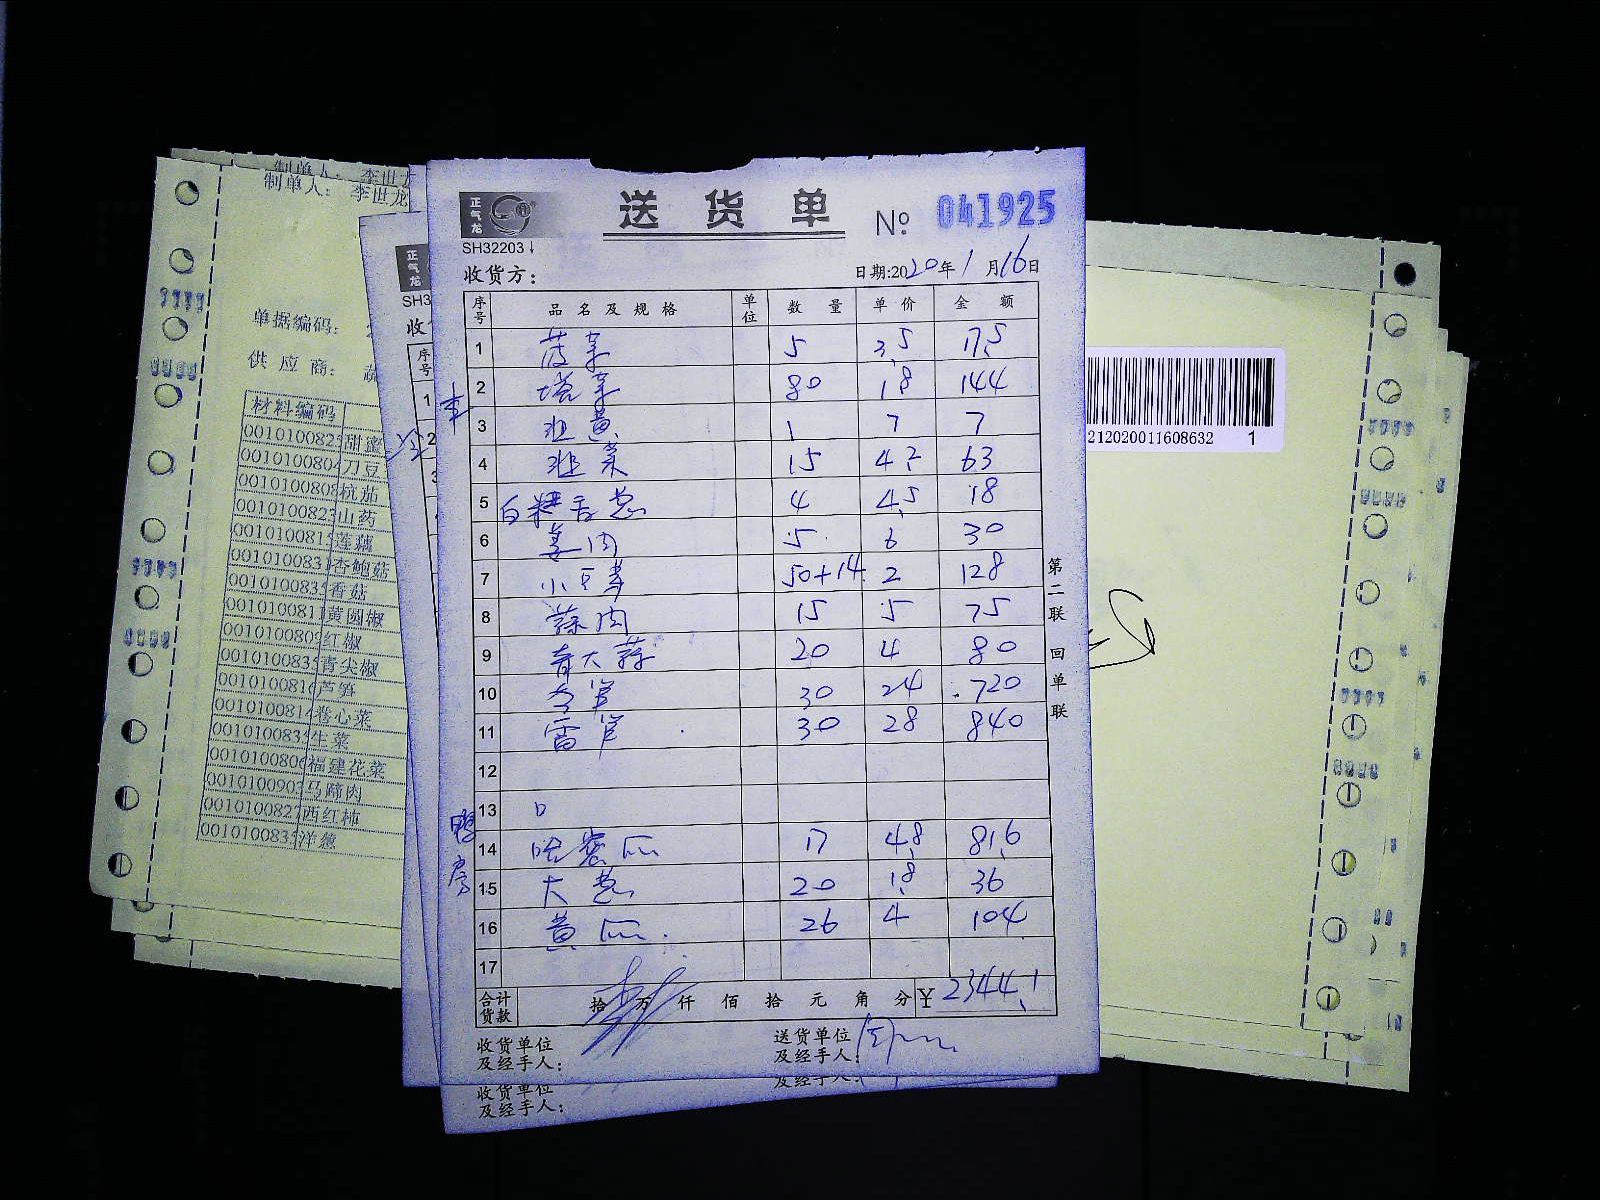 制单人: 李世龙
制单人: 李世龙
单据编码:
供 应 商: 蔬
材料编码
甜蜜
刀豆
杭茄
山药
莲藕
杏鲍菇
香菇
黄圆椒
红椒
青尖椒
芦笋
卷心菜
生菜
福建花菜
马蹄肉
西红柿
洋葱
正气龙
送 货 单
№ 041925
SH32203
收货方:
日期:2020年1月16日
序号 品名及规格 单位 数 量 单 价 金 额
1 菠菜 5 3.5 17.5
2 塔菜 80 1.8 144
3 韭黄 1 7 7
4 韭菜 15 4.2 63
5 4 4.5 18
6 姜肉 5 6 30
7 小豆芽 50+14 2 128
8 蒜肉 15 5 75
9 青大蒜 20 4 80
10 30 24 720
11 30 28 840
12
13
14 哈密瓜 17 4.8 81.6
15 大葱 20 1.8 36
16 黄瓜 26 4 104
17
合计货款 拾 万 仟 佰 拾 元 角 分 ¥ 2344.1
收货单位及经手人:
送货单位及经手人:
第二联 回单联
收货单位及经手人:
及经手人:
212020011608632 1